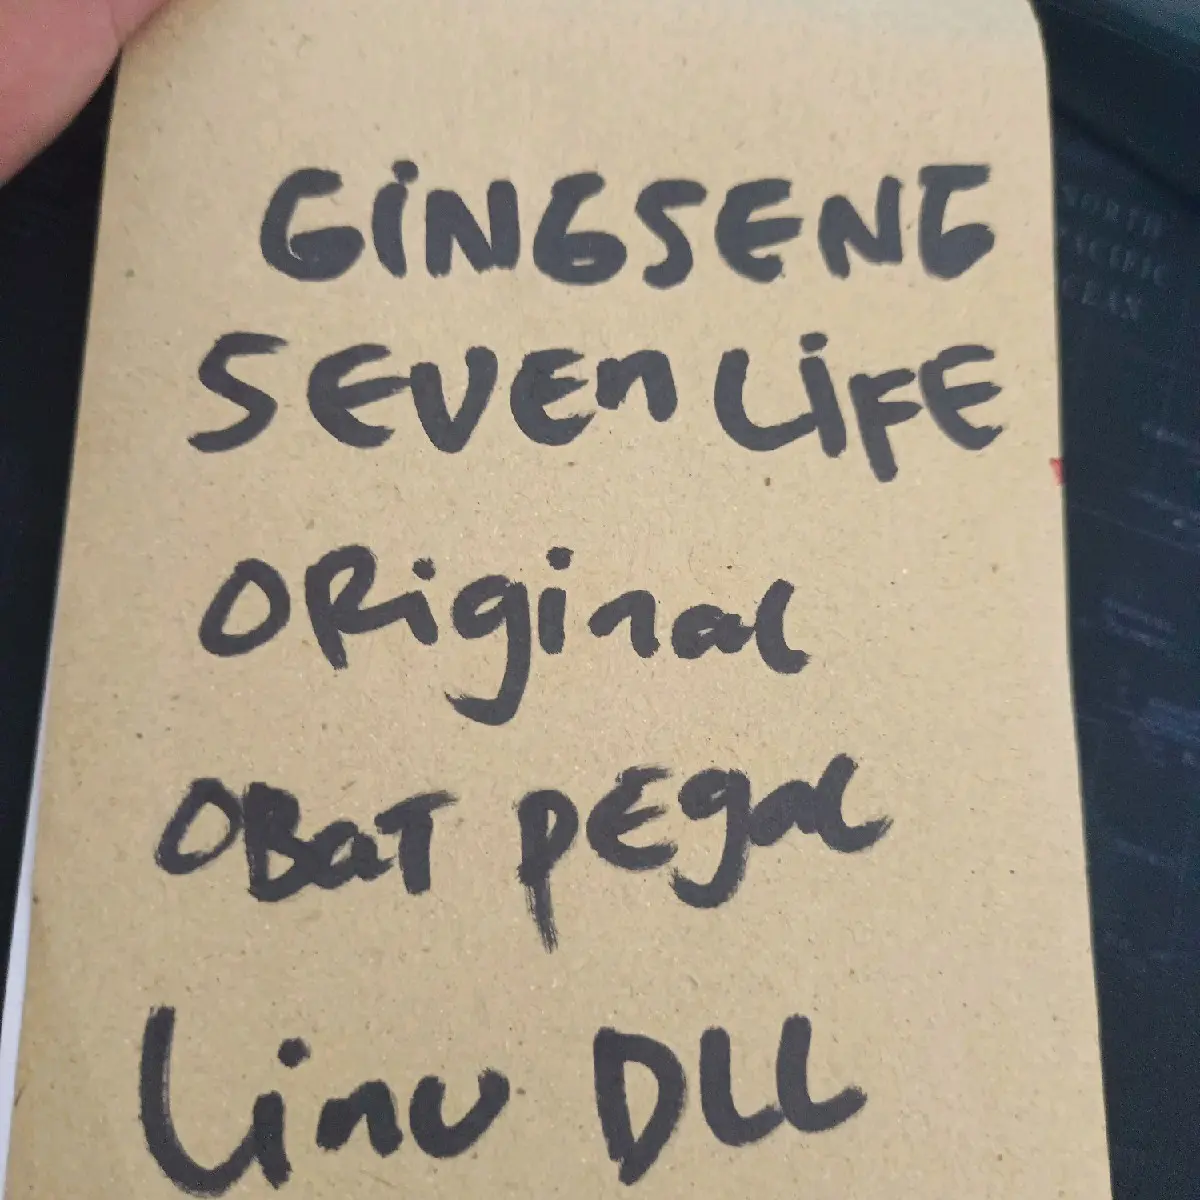 GiNGSENG
SEVEn LiFE
ORiginal
OBaT pEgal
Linu DLL
NORTH
PACIFIC
OCEAN